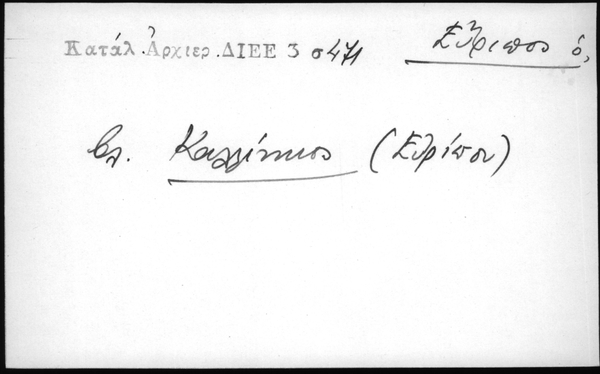 Κατάλ. Ἀρχιερ. ΔΙΕΕ 3 σ 471 Εὔριπος ὁ,
βλ. Καλλίνικος (Εὐρίπου)